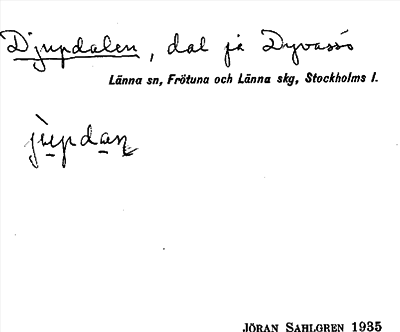 Djupdalen, dal på Dyvassö
Länna sn, Frötuna och Länna skg, Stockholms l.
jùpdan
JÖRAN SAHLGREN 1935